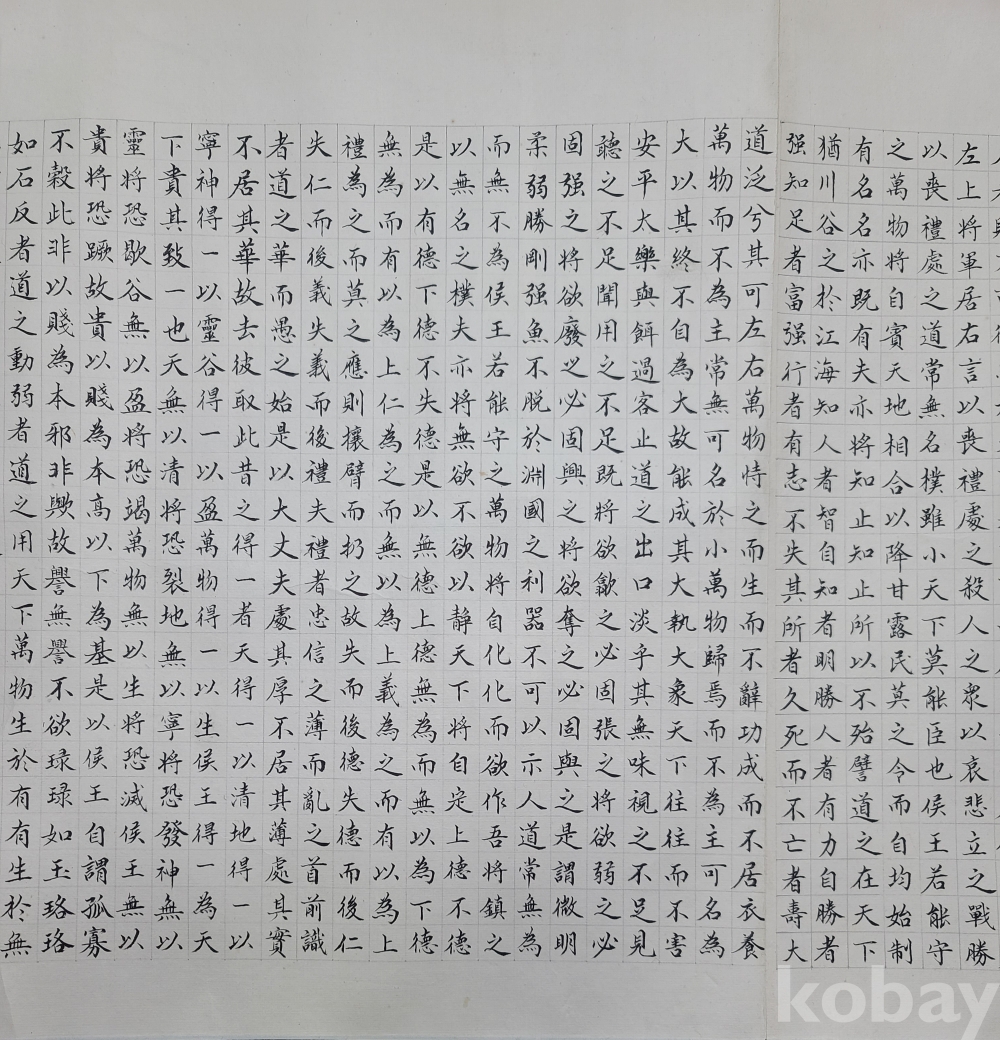 左上將軍居右言以喪禮處之殺人之眾以哀悲立之戰勝
以喪禮處之道常無名樸雖小天下莫能臣也侯王若能守
之萬物將自賓天地相合以降甘露民莫之令而自均始制
有名名亦既有夫亦將知止知止所以不殆譬道之在天下
猶川谷之於江海知人者智自知者明勝人者有力自勝者
强知足者富强行者有志不失其所者久死而不亡者壽大
道泛兮其可左右萬物恃之而生而不辭功成而不居衣養
萬物而不為主常無可名於小萬物歸焉而不為主可名為
大以其終不自為大故能成其大執大象天下往往而不害
安平太樂與餌過客止道之出口淡乎其無味視之不足見
聽之不足聞用之不足既將欲歙之必固張之將欲弱之必
固强之將欲廢之必固興之將欲奪之必固與之是謂微明
柔弱勝剛强魚不脱於淵國之利器不可以示人道常無為
而無不為侯王若能守之萬物將自化化而欲作吾將鎮之
以無名之樸夫亦將無欲不欲以静天下將自定上德不德
是以有德下德不失德是以無德上德無為而無以為下德
無為而有以為上仁為之而無以為上義為之而有以為上
禮為之而莫之應則攘臂而扔之故失而後德失德而後仁
失仁而後義失義而後禮夫禮者忠信之薄而亂之首前識
者道之華而愚之始是以大丈夫處其厚不居其薄處其實
不居其華故去彼取此昔之得一者天得一以清地得一以
寧神得一以靈谷得一以盈萬物得一以生侯王得一為天
下貴其致一也天無以清將恐裂地無以寧將恐發神無以
靈將恐歇谷無以盈將恐竭萬物無以生將恐滅侯王無以
貴將恐蹶故貴以賤為本高以下為基是以侯王自謂孤寡
不穀此非以賤為本邪非歟故譽無譽不欲琭琭如玉珞珞
如石反者道之動弱者道之用天下萬物生於有有生於無
kobay